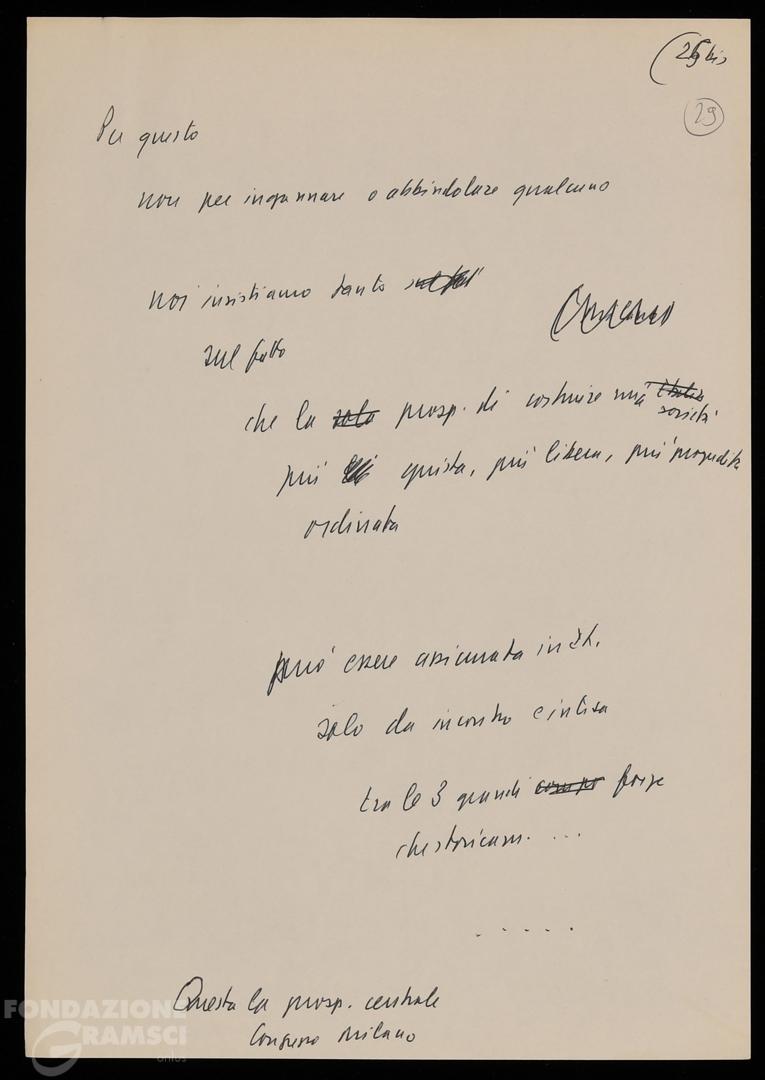 bis
29
Per questo
non per ingannare o abbindolare qualcuno
noi insistiamo tanto
sul fatto
che la sola prosp. di costruire una
società
più giusta, più libera, più
ordinata
può essere assicurata in It.
solo da incontro e intesa
tra le 3 grandi forze
che storicam. ...
.....
Questa la prosp. centrale
Congresso Milano
FONDAZIONE
GRAMSCI
onlus